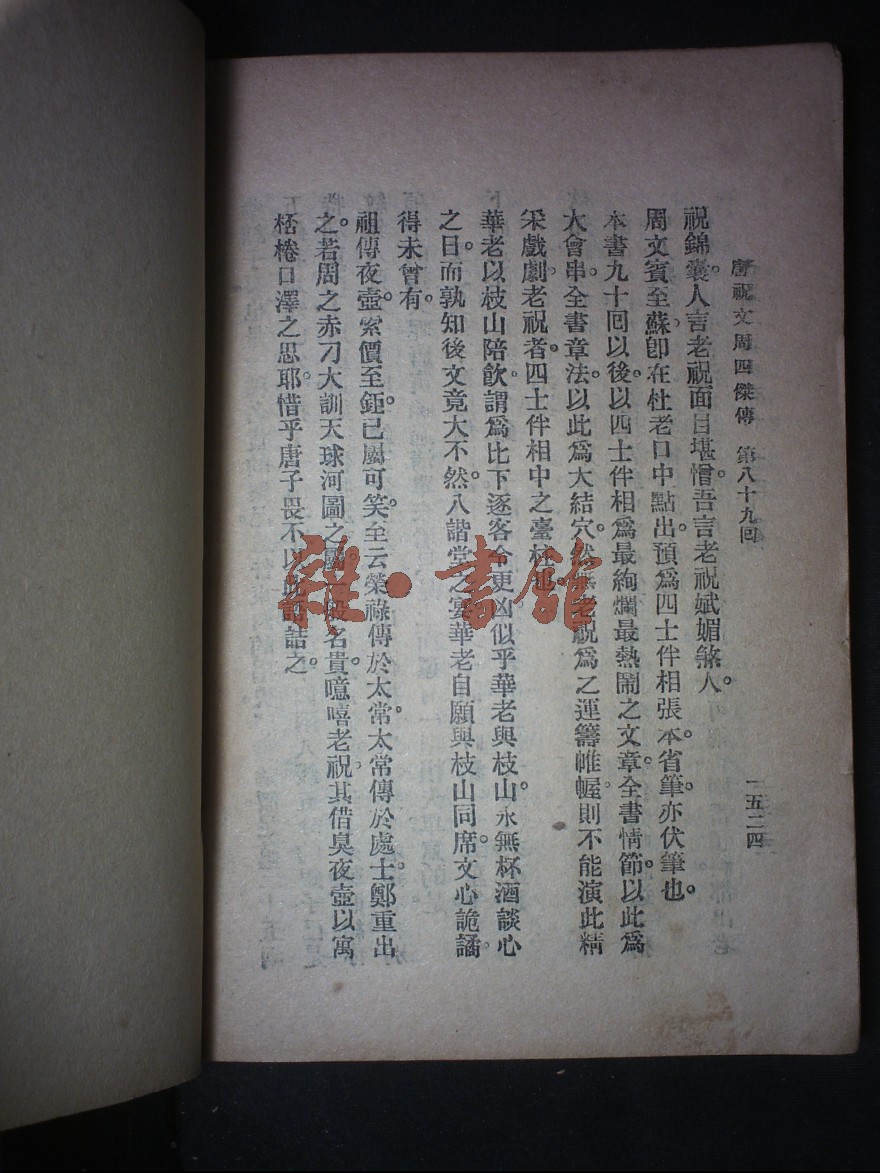 唐祝文周四傑傳 第八十九回 一五二四
祝錦囊。人言老祝面目堪憎。吾言老祝斌媚煞人。
周文賓至蘇卽在杜老口中點出。預爲四士伴相張本。省筆。亦伏筆也。
本書九十回以後。以四士伴相爲最絢爛最熱鬧之文章。全書情節。以此爲
大會串。全書章法。以此爲大結穴。然無老祝爲之運籌帷幄。則不能演此精
采戲劇。老祝者。四士伴相中之臺柱也。
華老以枝山陪飲。謂爲比下逐客令更凶。似乎華老與枝山。永無杯酒談心
之日。而孰知後文竟大不然。八諧堂之宴。華老自願與枝山同席。文心詭譎。
得未曾有。
祖傳夜壺。索價至鉅。已屬可笑。至云榮祿傳於太常。太常傳於處士。鄭重出
之。若周之赤刀大訓天球河圖之屬。一般名貴。噫嘻老祝。其借臭夜壺以寓
桮棬口澤之思耶。惜乎唐子畏不以此語詰之。
雜·書館